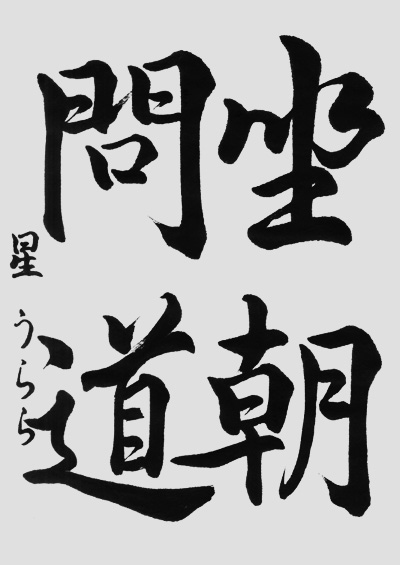 坐朝
問道
星うらら